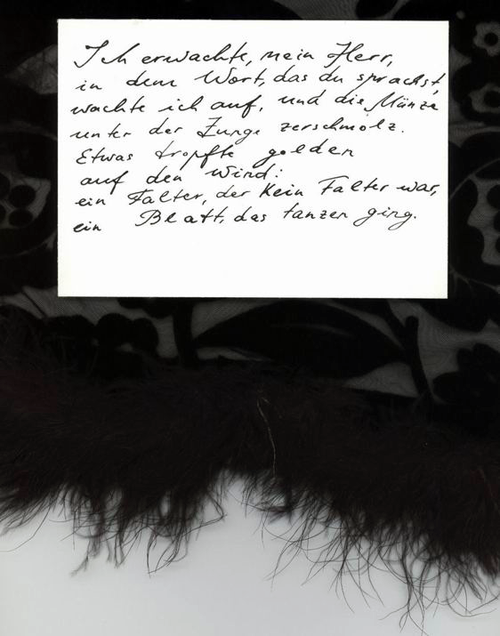 Ich erwachte, mein Herr,
in dem Wort, das du sprachst,
wachte ich auf, und die Münze
unter der Zunge zerschmolz.
Etwas tropfte golden
auf den Wind:
ein Falter, der kein Falter war,
ein Blatt, das tanzen ging.